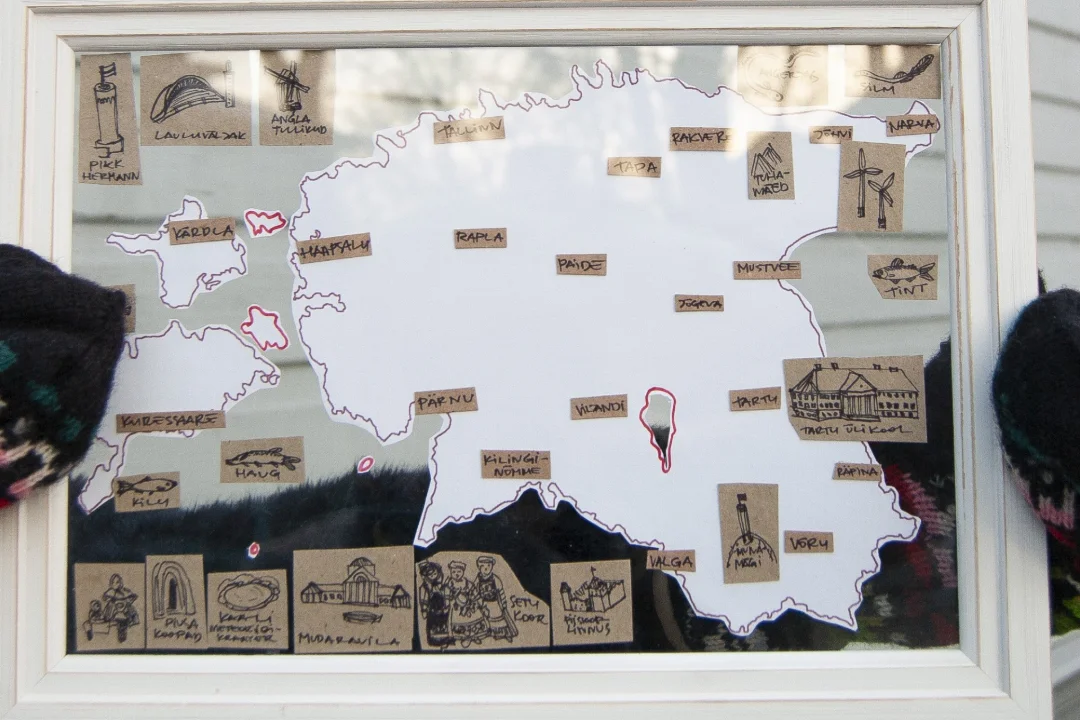 PIKK
HERMANN
LAULUVÄLJAK
ANGLA
TUULIKUD
SILM
TALLINN
RAKVERE
JÕHVI
NARVA
TAPA
TUHA-
MÄED
KÄRDLA
HAAPSALU
RAPLA
PAIDE
MUSTVEE
TINT
JÕGEVA
PÄRNU
VILJANDI
TARTU
TARTU ÜLIKOOL
KURESSAARE
HAUG
KILINGI-
NÕMME
RÄPINA
KILU
VALGA
MUNA
MÄGI
VÕRU
PIUSA
KOOPAD
KAALI
METEORIIDI-
KRAATER
MUDARAVILA
SETU
KOOR
PIISKOPI
LINNUS